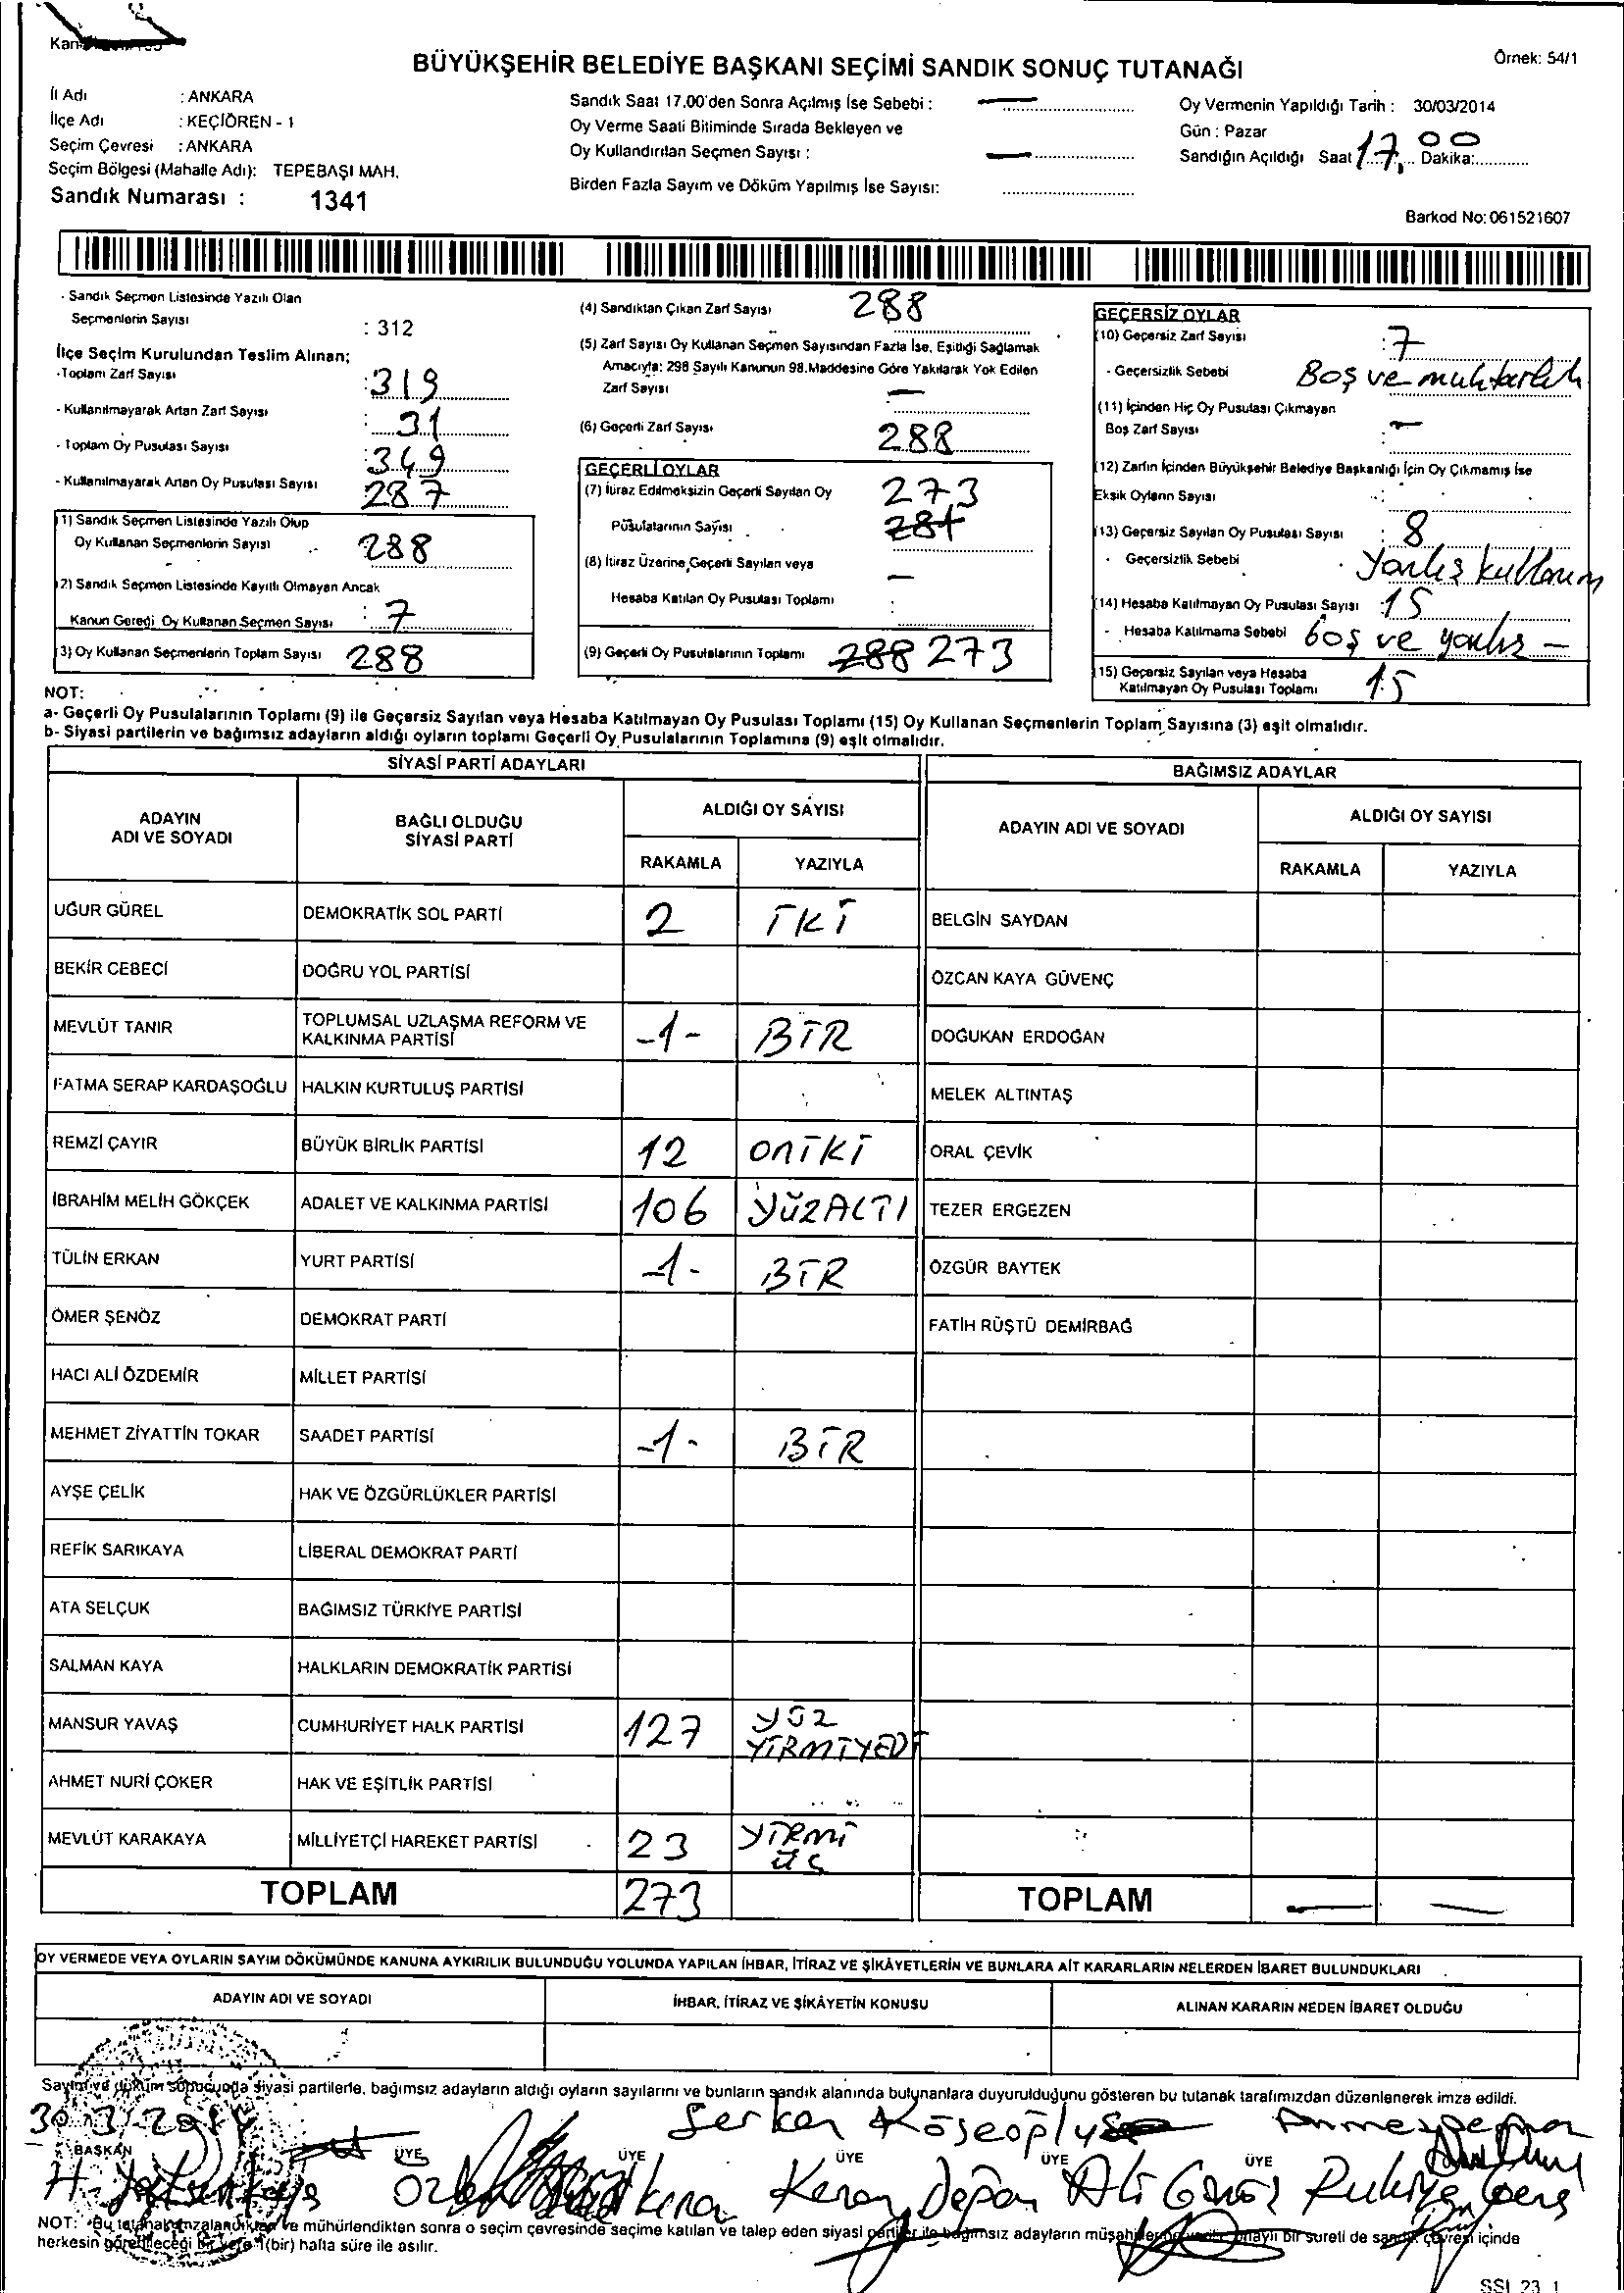 BÜYÜKŞEHİR BELEDİYE BAŞKANI SEÇİMİ SANDIK SONUÇ TUTANAĞI
Örnek: 54/1
İl Adı : ANKARA
İlçe Adı : KEÇİÖREN - 1
Seçim Çevresi : ANKARA
Seçim Bölgesi (Mahalle Adı): TEPEBAŞI MAH.
Sandık Numarası : 1341
Sandık Saat 17.00'den Sonra Açılmış İse Sebebi :
Oy Verme Saati Bitiminde Sırada Bekleyen ve
Oy Kullandırılan Seçmen Sayısı :
Birden Fazla Sayım ve Döküm Yapılmış İse Sayısı:
Oy Vermenin Yapıldığı Tarih : 30/03/2014
Gün : Pazar
Sandığın Açıldığı Saat 17, Dakika: 00
Barkod No: 061521607
- Sandık Seçmen Listesinde Yazılı Olan
Seçmenlerin Sayısı : 312
İlçe Seçim Kurulundan Teslim Alınan;
- Toplam Zarf Sayısı : 319
- Kullanılmayarak Artan Zarf Sayısı : 31
- Toplam Oy Pusulası Sayısı : 349
- Kullanılmayarak Artan Oy Pusulası Sayısı 287
(1) Sandık Seçmen Listesinde Yazılı Olup
Oy Kullanan Seçmenlerin Sayısı 288
(2) Sandık Seçmen Listesinde Kayıtlı Olmayan Ancak
Kanun Gereği Oy Kullanan Seçmen Sayısı : 7
(3) Oy Kullanan Seçmenlerin Toplam Sayısı 288
(4) Sandıktan Çıkan Zarf Sayısı 288
(5) Zarf Sayısı Oy Kullanan Seçmen Sayısından Fazla İse, Eşitliği Sağlamak
Amacıyla: 298 Sayılı Kanunun 98.Maddesine Göre Yakılarak Yok Edilen
Zarf Sayısı —
(6) Geçerli Zarf Sayısı 288
GEÇERLİ OYLAR
(7) İtiraz Edilmeksizin Geçerli Sayılan Oy 273
Pusulalarının Sayısı
(8) İtiraz Üzerine Geçerli Sayılan veya —
Hesaba Katılan Oy Pusulası Toplamı :
(9) Geçerli Oy Pusulalarının Toplamı 288 273
GEÇERSİZ OYLAR
(10) Geçersiz Zarf Sayısı : 7
- Geçersizlik Sebebi Boş ve muhtarlık
(11) İçinden Hiç Oy Pusulası Çıkmayan
Boş Zarf Sayısı : —
(12) Zarfın İçinden Büyükşehir Belediye Başkanlığı İçin Oy Çıkmamış İse
Eksik Oyların Sayısı :
(13) Geçersiz Sayılan Oy Pusulası Sayısı : 8
- Geçersizlik Sebebi
(14) Hesaba Katılmayan Oy Pusulası Sayısı : 15
- Hesaba Katılmama Sebebi boş ve yanlış —
(15) Geçersiz Sayılan veya Hesaba
Katılmayan Oy Pusulası Toplamı 15
NOT:
a- Geçerli Oy Pusulalarının Toplamı (9) ile Geçersiz Sayılan veya Hesaba Katılmayan Oy Pusulası Toplamı (15) Oy Kullanan Seçmenlerin Toplam Sayısına (3) eşit olmalıdır.
b- Siyasi partilerin ve bağımsız adayların aldığı oyların toplamı Geçerli Oy Pusulalarının Toplamına (9) eşit olmalıdır.
SİYASİ PARTİ ADAYLARI BAĞIMSIZ ADAYLAR
ADAYIN ADI VE SOYADI BAĞLI OLDUĞU SİYASİ PARTİ ALDIĞI OY SAYISI ADAYIN ADI VE SOYADI ALDIĞI OY SAYISI
RAKAMLA YAZIYLA RAKAMLA YAZIYLA
UĞUR GÜREL DEMOKRATİK SOL PARTİ 2 İKİ BELGİN SAYDAN
BEKİR CEBECİ DOĞRU YOL PARTİSİ ÖZCAN KAYA GÜVENÇ
MEVLÜT TANIR TOPLUMSAL UZLAŞMA REFORM VE KALKINMA PARTİSİ -1- BİR DOĞUKAN ERDOĞAN
FATMA SERAP KARDAŞOĞLU HALKIN KURTULUŞ PARTİSİ MELEK ALTINTAŞ
REMZİ ÇAYIR BÜYÜK BİRLİK PARTİSİ 12 ONİKİ ORAL ÇEVİK
İBRAHİM MELİH GÖKÇEK ADALET VE KALKINMA PARTİSİ 106 YÜZALTI TEZER ERGEZEN
TÜLİN ERKAN YURT PARTİSİ -1- BİR ÖZGÜR BAYTEK
ÖMER ŞENÖZ DEMOKRAT PARTİ FATİH RÜŞTÜ DEMİRBAĞ
HACI ALİ ÖZDEMİR MİLLET PARTİSİ
MEHMET ZİYATTİN TOKAR SAADET PARTİSİ -1- BİR
AYŞE ÇELİK HAK VE ÖZGÜRLÜKLER PARTİSİ
REFİK SARIKAYA LİBERAL DEMOKRAT PARTİ
ATA SELÇUK BAĞIMSIZ TÜRKİYE PARTİSİ
SALMAN KAYA HALKLARIN DEMOKRATİK PARTİSİ
MANSUR YAVAŞ CUMHURİYET HALK PARTİSİ 127 YÜZ YİRMİYEDİ
AHMET NURİ ÇOKER HAK VE EŞİTLİK PARTİSİ
MEVLÜT KARAKAYA MİLLİYETÇİ HAREKET PARTİSİ 23 YİRMİ ÜÇ
TOPLAM 273 TOPLAM — —
OY VERMEDE VEYA OYLARIN SAYIM DÖKÜMÜNDE KANUNA AYKIRILIK BULUNDUĞU YOLUNDA YAPILAN İHBAR, İTİRAZ VE ŞİKÂYETLERİN VE BUNLARA AİT KARARLARIN NELERDEN İBARET BULUNDUKLARI
ADAYIN ADI VE SOYADI İHBAR, İTİRAZ VE ŞİKÂYETİN KONUSU ALINAN KARARIN NEDEN İBARET OLDUĞU
Sayım ve döküm sonucunda siyasi partilerle, bağımsız adayların aldığı oyların sayılarını ve bunların sandık alanında bulunanlara duyurulduğunu gösteren bu tutanak tarafımızdan düzenlenerek imza edildi.
30.3.2014 Serkan Köseoğlu
BAŞKAN ÜYE ÜYE ÜYE ÜYE ÜYE
Kenan Doğan Ali
NOT: Bu tutanak imzalandıktan ve mühürlendikten sonra o seçim çevresinde seçime katılan ve talep eden siyasi partiler ile bağımsız adayların bir sureti de sandık çevresi içinde
herkesin görebileceği bir yere 1(bir) hafta süre ile asılır.